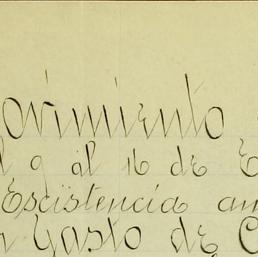 ovimiento
l 9 al 16 de E
Escistencia an
Gasto de C